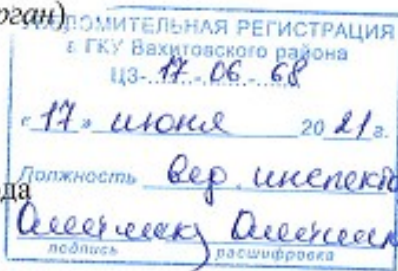 рган)
УВЕДОМИТЕЛЬНАЯ РЕГИСТРАЦИЯ
в ГКУ Вахитовского района
ЦЗ-17-06-68
«17» июня 2021 г.
Должность вед. инспекто
да
подпись расшифровка